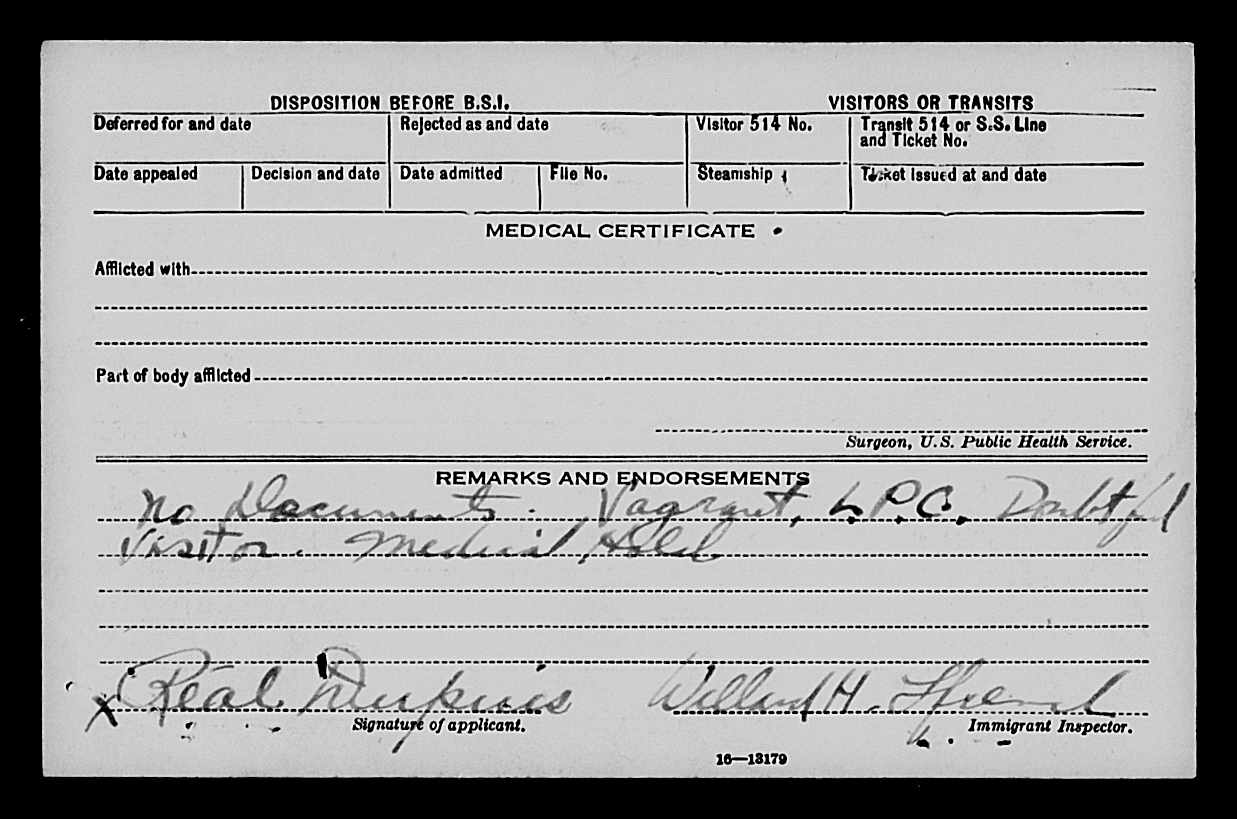 DISPOSITION BEFORE B.S.I. VISITORS OR TRANSITS
Deferred for and date Rejected as and date Visitor 514 No. Transit 514 or S.S. Line and Ticket No.
Date appealed Decision and date Date admitted File No. Steamship Ticket issued at and date
MEDICAL CERTIFICATE
Afflicted with
Part of body afflicted
Surgeon, U.S. Public Health Service.
REMARKS AND ENDORSEMENTS
No Documents. Vagrant, L.P.C. Doubtful
Visitor. Medical Hold
X Réal Willard H.
Signature of applicant. Immigrant Inspector.
16—13179